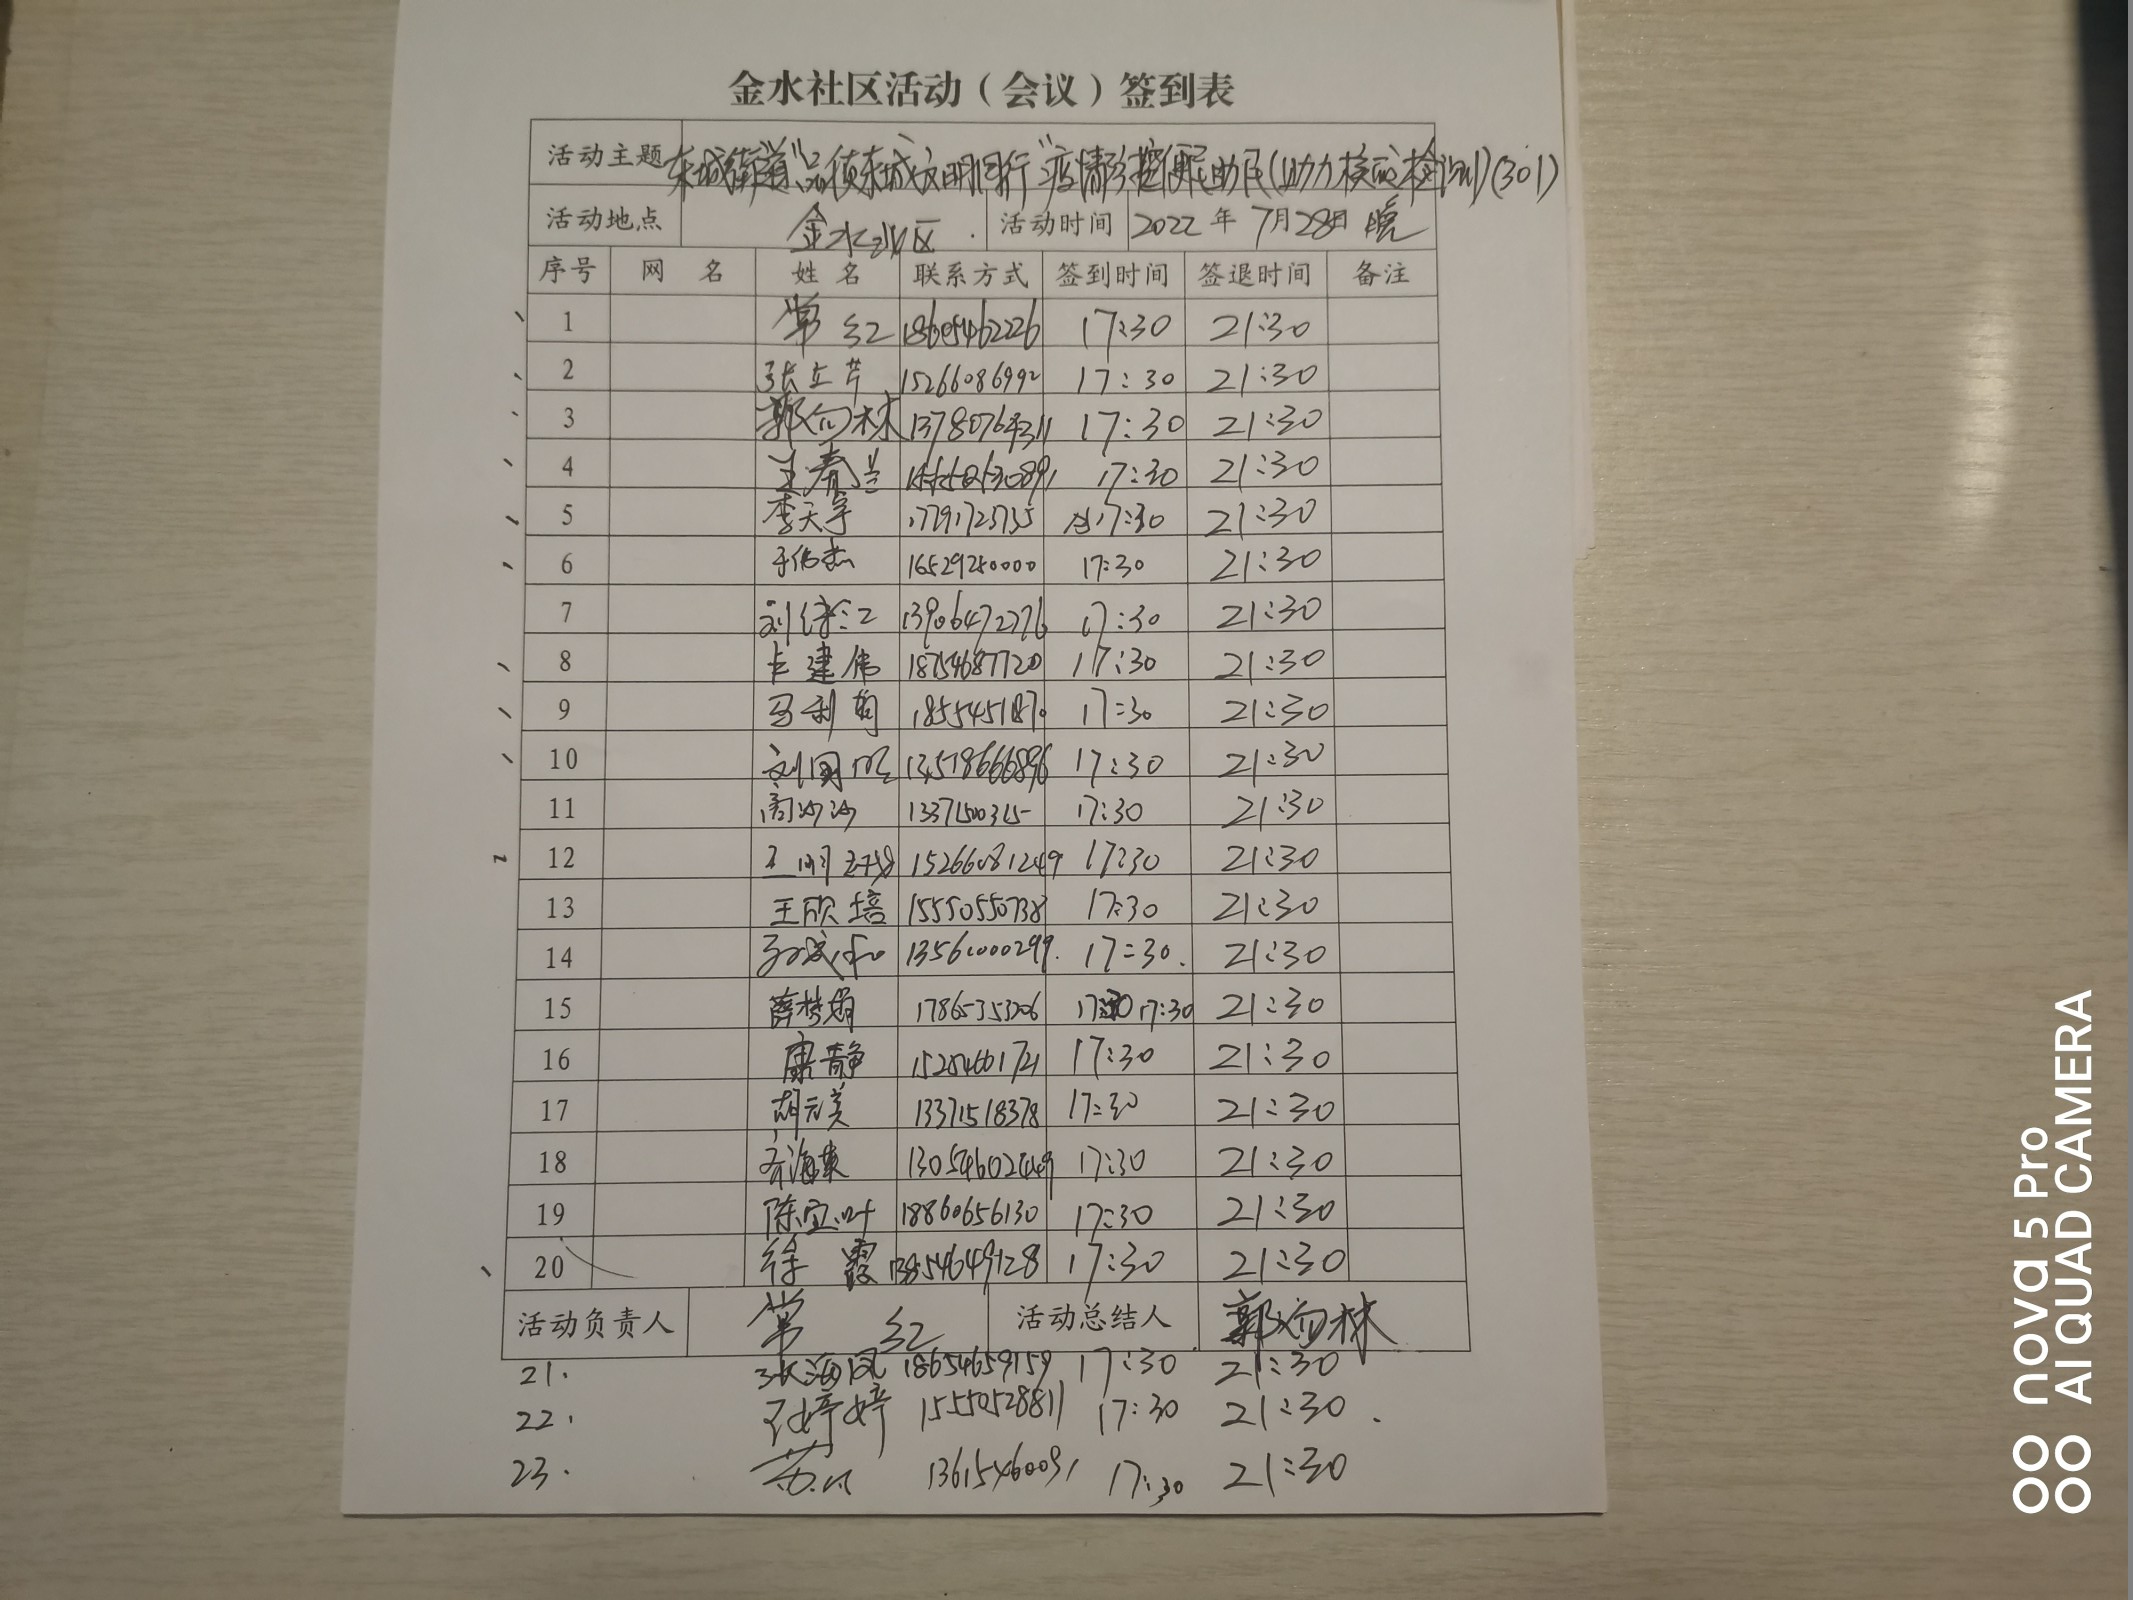 金水社区活动（会议）签到表
活动主题 东城街道"品质东城文明同行"疫情防控便民助民(助力核酸检测)(301)
活动地点 金水社区 活动时间 2022年7月28日 晚
序号 网 名 姓 名 联系方式 签到时间 签退时间 备注
1 常红 18605462226 17:30 21:30
2 张立芹 15266086992 17:30 21:30
3 郭向林 13780764311 17:30 21:30
4 王春兰 17:30 21:30
5 李天宇 17:30 21:30
6 于伟杰 16529250000 17:30 21:30
7 13906472276 17:30 21:30
8 卞建伟 18754687720 17:30 21:30
9 马利菊 17:30 21:30
10 刘国旺 17:30 21:30
11 17:30 21:30
12 15266081249 17:30 21:30
13 王欣培 15550550738 17:30 21:30
14 13561000299. 17:30. 21:30
15 薛梦娟 17865353206 17:30 21:30
16 康静 15254601721 17:30 21:30
17 胡元美 13371518378 17:30 21:30
18 13054602449 17:30 21:30
19 陈宜叶 18860656130 17:30 21:30
20 徐霞 13854649128 17:30 21:30
活动负责人 常红 活动总结人 郭向林
21. 张海凤 18654659159 17:30 21:30
22. 15550528811 17:30 21:30.
23. 13615460091 17:30 21:30
nova 5 Pro
AI QUAD CAMERA